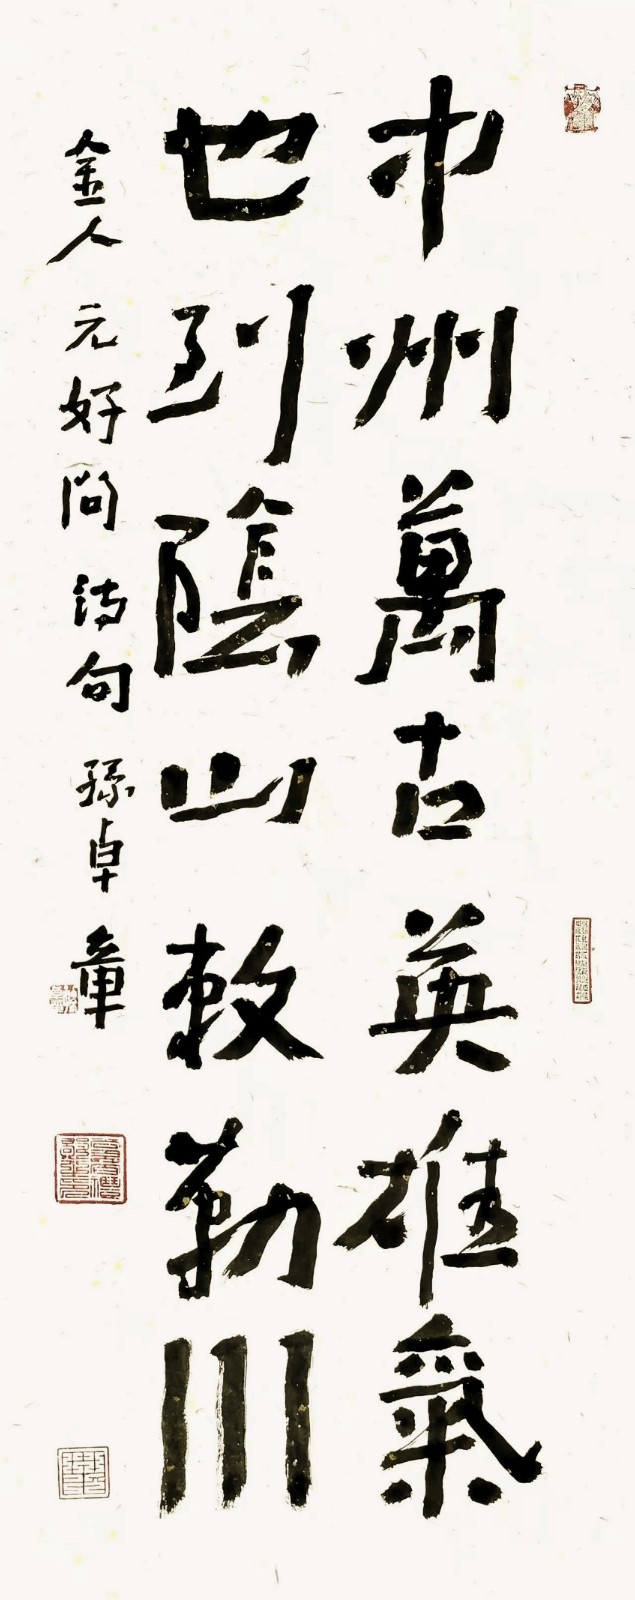 中州萬古英雄氣
也到陰山敕勒川
金人 元好问诗句 孫卓章